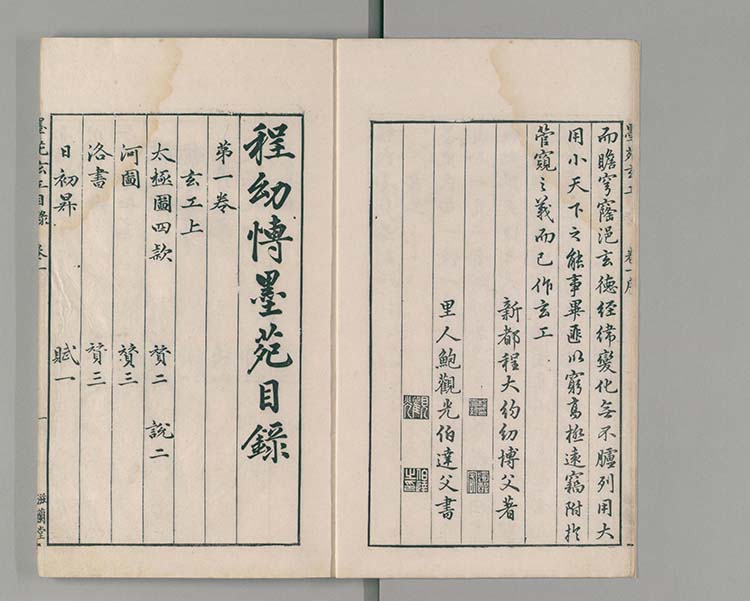 墨苑玄工 卷一序
而瞻穹窿浥玄德經緯變化無不臚列用大
用小天下之能事畢匪以窮高極遠竊附扵
管窺之義而已作玄工
新都程大約幼博父著
里人鮑觀光伯達父書
程幼博墨苑目錄
第一卷
玄工上
太極圖四款 贊二 說二
河圖 贊三
洛書 贊三
日初昇 賦一
墨苑玄工目錄 卷一 一 滋蘭堂